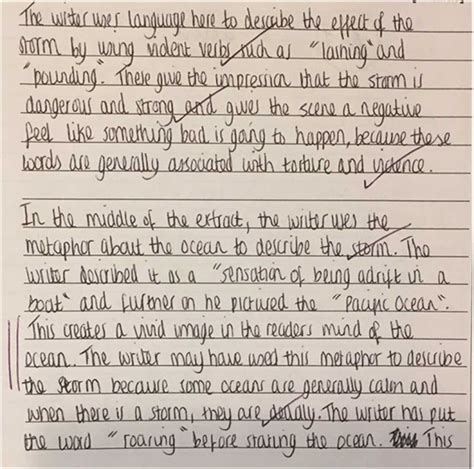 The writer uses language here to describe the effect of the
storm by using violent verbs such as "lashing" and
"pounding". These give the impression that the storm is
dangerous and strong and gives the scene a negative
feel like something bad is going to happen, because these
words are generally associated with torture and violence.
In the middle of the extract, the writer uses the
metaphor about the ocean to describe the storm. The
writer described it as a "sensation of being adrift in a
boat" and further on he pictured the "Pacific Ocean".
This creates a vivid image in the readers mind of the
ocean. The writer may have used this metaphor to describe
the storm because some oceans are generally calm and
when there is a storm, they are deadly. The writer has put
the word "roaring" before stating the ocean. This